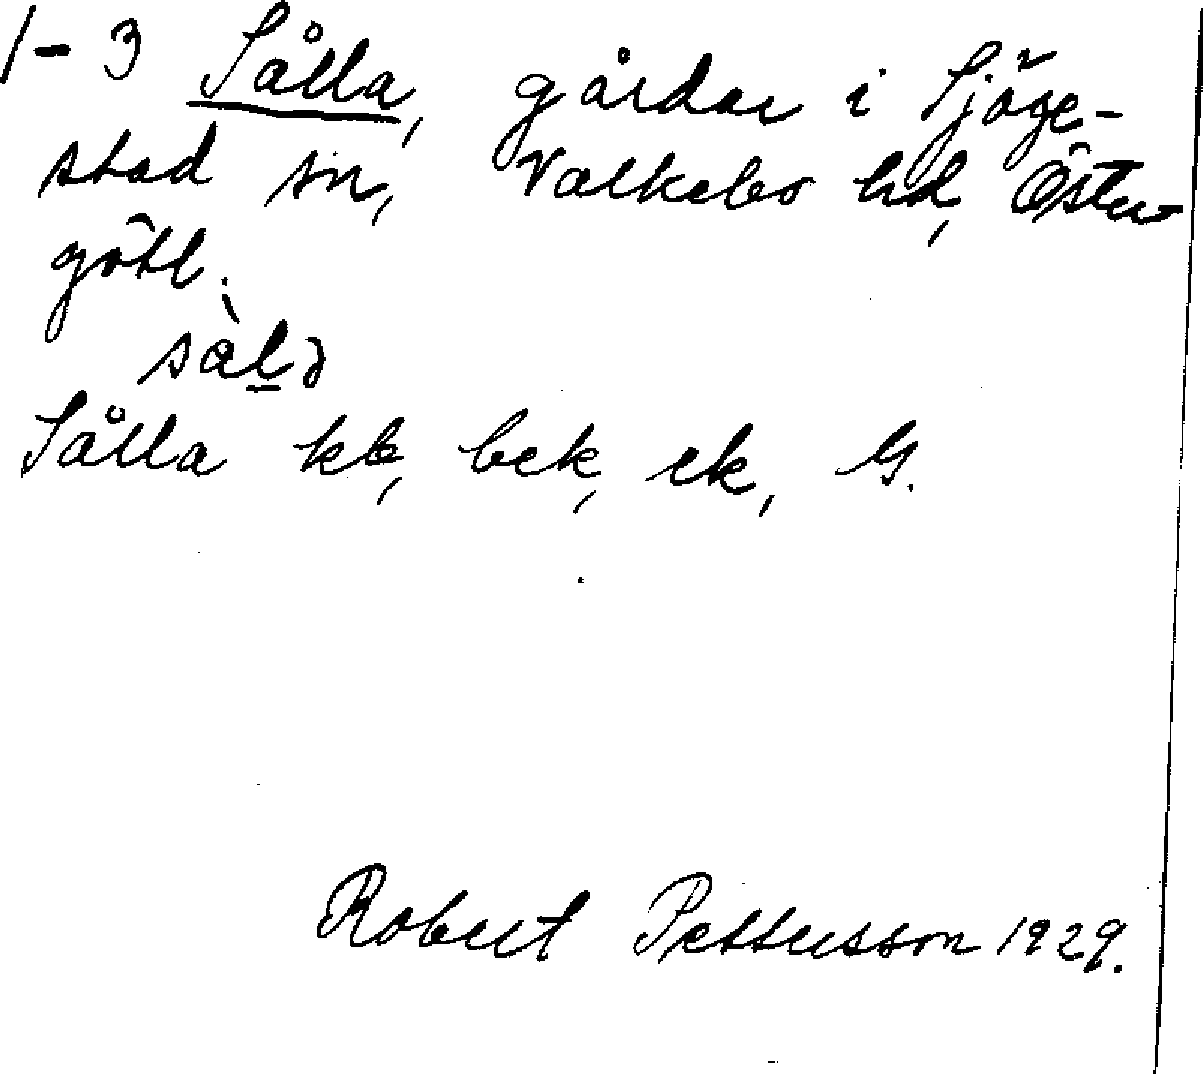 1-3 Sålla, gårdar i Sjöge-
stad sn, Valkebo hd, Öster-
götl.
sàl̲ə
Sålla kk, bek, ek, G.
Robert Pettersson 1929.